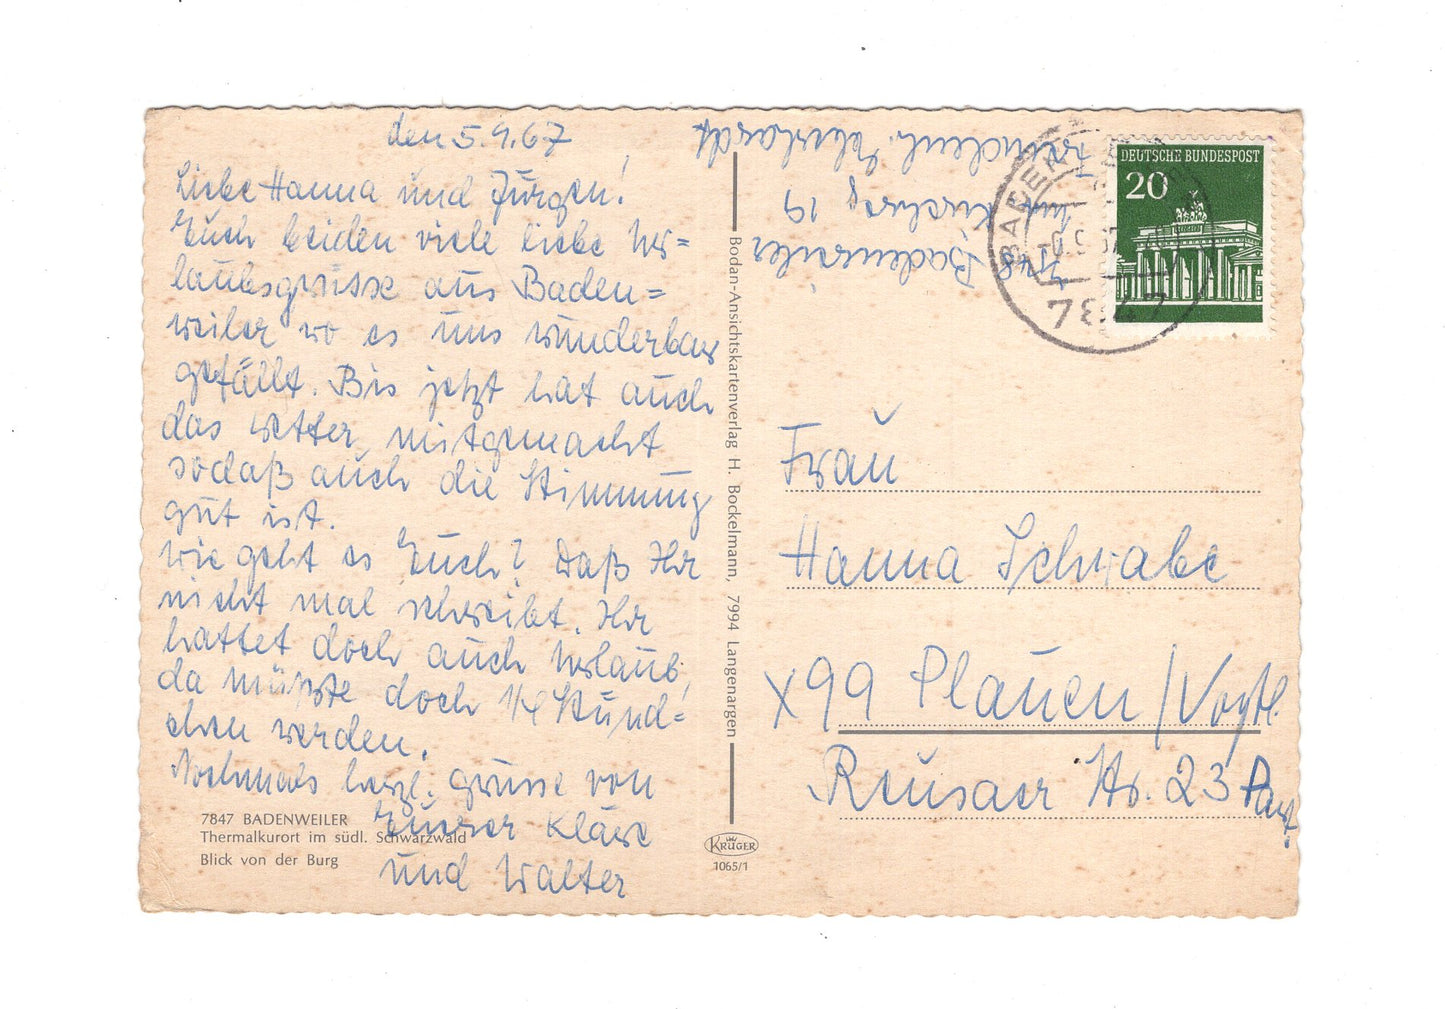 den 5.9.67
Liebe Hanna und Jürgen!
Euch beiden viele liebe Ur=
laubsgrüsse aus Baden=
weiler wo es uns wunderbar
gefällt. Bis jetzt hat auch
das Wetter mitgemacht
sodaß auch die Stimmung
gut ist.
Wie geht es Euch? Daß Ihr
nicht mal schreibt. Ihr
hattet doch auch Urlaub,
da müßte doch 1/4 Stünd=
chen werden.
Nochmals herzl. Grüsse von
Eurer Kläre
und Walter
7847 BADENWEILER
Thermalkurort im südl. Schwarzwald
Blick von der Burg
Bodan-Ansichtskartenverlag H. Bockelmann, 7994 Langenargen
KRÜGER
1065/1
7847 Badenweiler
19
Eberhardt
DEUTSCHE BUNDESPOST
20
7847
Frau
Hanna Schwabe
X99 Plauen/Vogtl.
Reusaer Str. 23 Part.